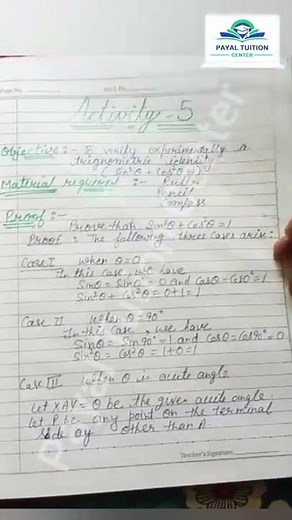 PAYAL TUITION
CENTER
Page No.
Date
Activity - 5
Objective :- To verify experimentally a
trignometric identity
(Sin²θ + Cos²θ = 1)
Material required :- Ruler
Pencil
Compass
Proof :-
Prove that Sin²θ + Cos²θ = 1
Proof : The following three cases arise :
Case I When θ = 0
In this case, we have
Sinθ = Sin0° = 0 and Cosθ = Cos0° = 1
Sin²θ + Cos²θ = 0+1 = 1
Case II When θ = 90°
In this case, we have
Sinθ = Sin 90° = 1 and Cosθ = Cos90° = 0
Sin²θ = Cos²θ = 1+0 = 1
Case III When θ is acute angle
Let XAY = θ be the given acute angle.
Let P be any point on the terminal
side ay other than A.
Teacher's Signature